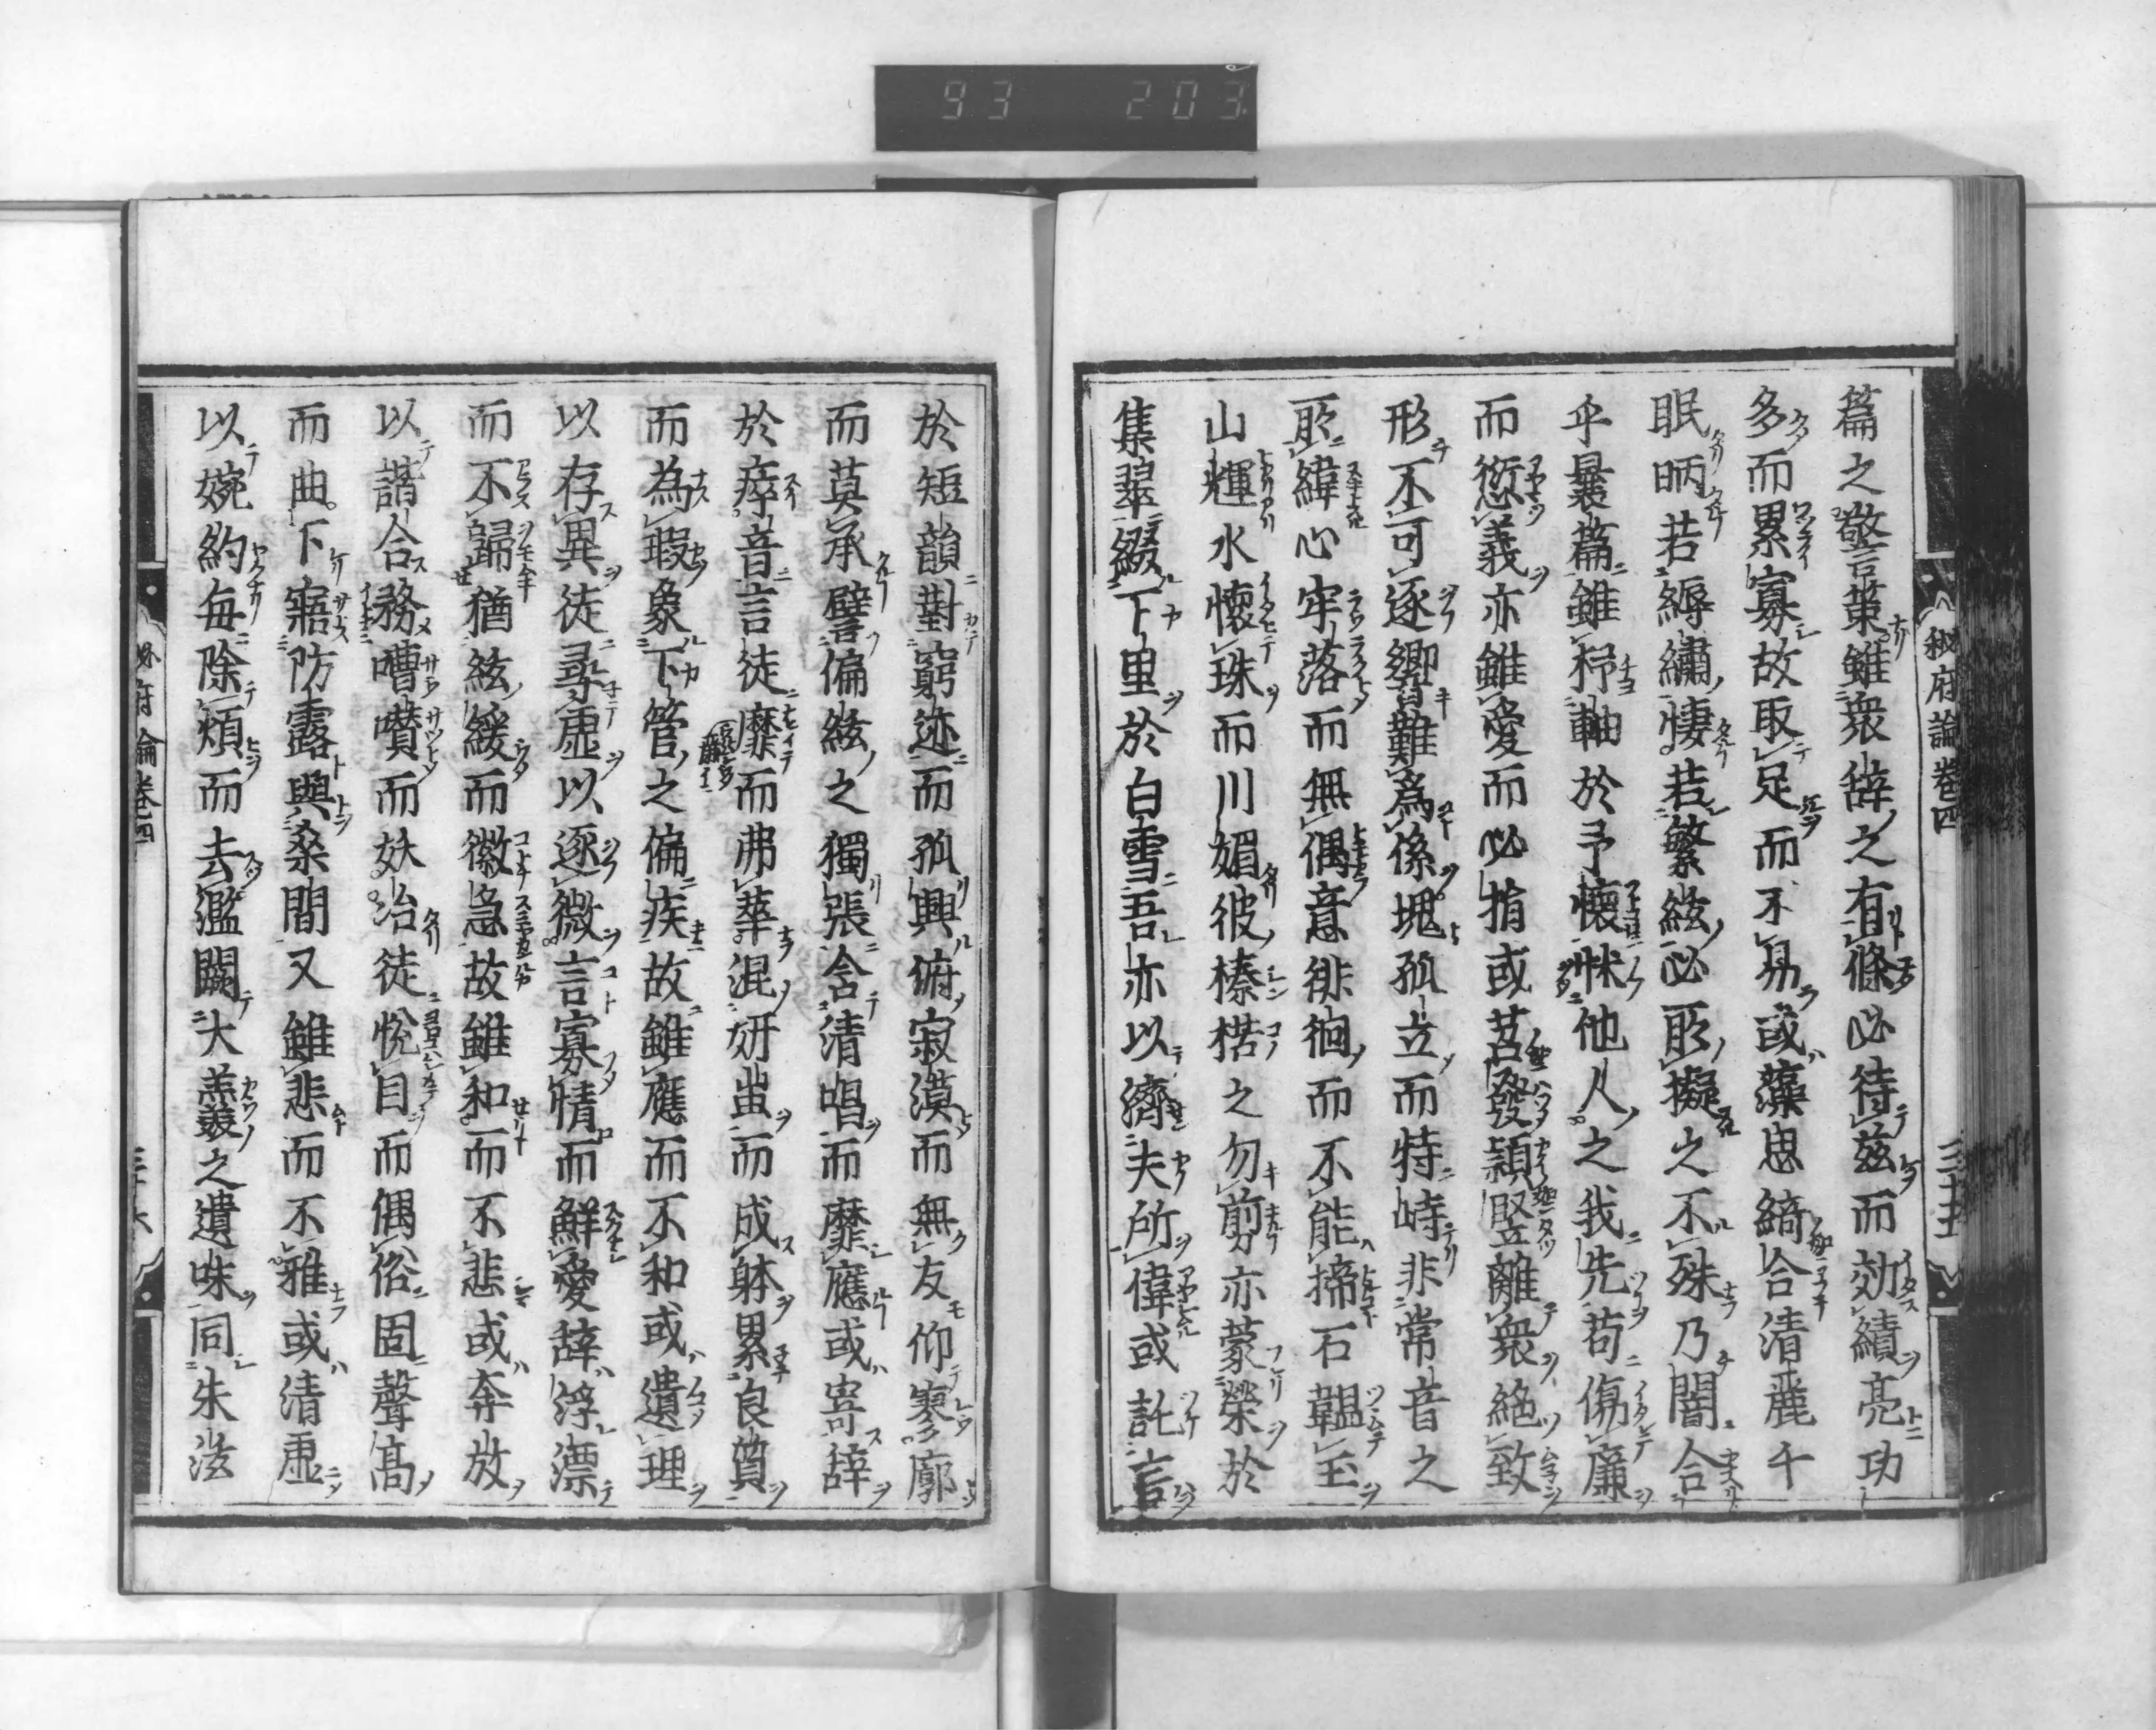 93 203
篇之警策雖衆辞之有條必待茲而効績亮功
多而累寡故取足而不易或藻思綺合清麗千
眠昞若縟繡悽若繁絃必所擬之不殊乃闇合
乎曩篇雖杼軸於予懷怵他人之我先苟傷廉
而愆義亦雖愛而必捐或苕發穎竪離衆絶致
形不可逐響難為係塊孤立而特峙非常音之
所緯心牢落而無偶意徘徊而不能揥石韞玉
山輝水懷珠而川媚彼榛楛之勿剪亦蒙榮於
集翠綴下里於白雪吾亦以濟夫所偉或託言
秘府論卷四 三十五
於短韻對窮迹而孤興俯寂漠而無友仰寥廓
而莫承譬偏絃之獨張含清唱而靡應或寄辞
於瘁音言徒靡而弗華混妍蚩而成躰累良質
而為瑕象下管之偏疾故雖應而不和或遺理
以存異徒尋虚以逐微言寡情而鮮愛辞浮漂
而不歸猶絃緩而徽急故雖和而不悲或奔放
以諧合務嘈囋而妖冶徒悅目而偶俗固聲高
而曲下寤防露與桑間又雖悲而不雅或清虚
以婉約毎除煩而去濫闕大羹之遺味同朱泫
秘府論卷四 三十六